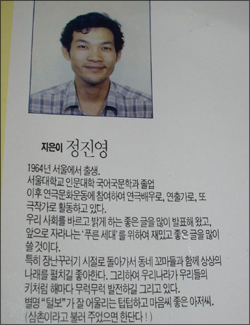 지은이 정진영
1964년 서울에서 출생.
서울대학교 인문대학 국어국문학과 졸업
이후 연극문화운동에 참여하여 연극배우로, 연출가로, 또
극작가로 활동하고 있다.
우리 사회를 바르고 밝게 하는 좋은 글을 많이 발표해 왔고,
앞으로 자라나는 '푸른 세대'를 위하여 재밌고 좋은 글을 많이
쓸 것이다.
특히 장난꾸러기 시절로 돌아가서 동네 꼬마들과 함께 상상의
나래를 펼치길 좋아한다. 그리하여 우리나라가 우리들의
키처럼 해마다 무럭무럭 발전하길 그리고 있다.
별명 "털보"가 잘 어울리는 텁텁하고 마음씨 좋은 아저씨.
(삼촌이라고 불러 주었으면 한단다!)